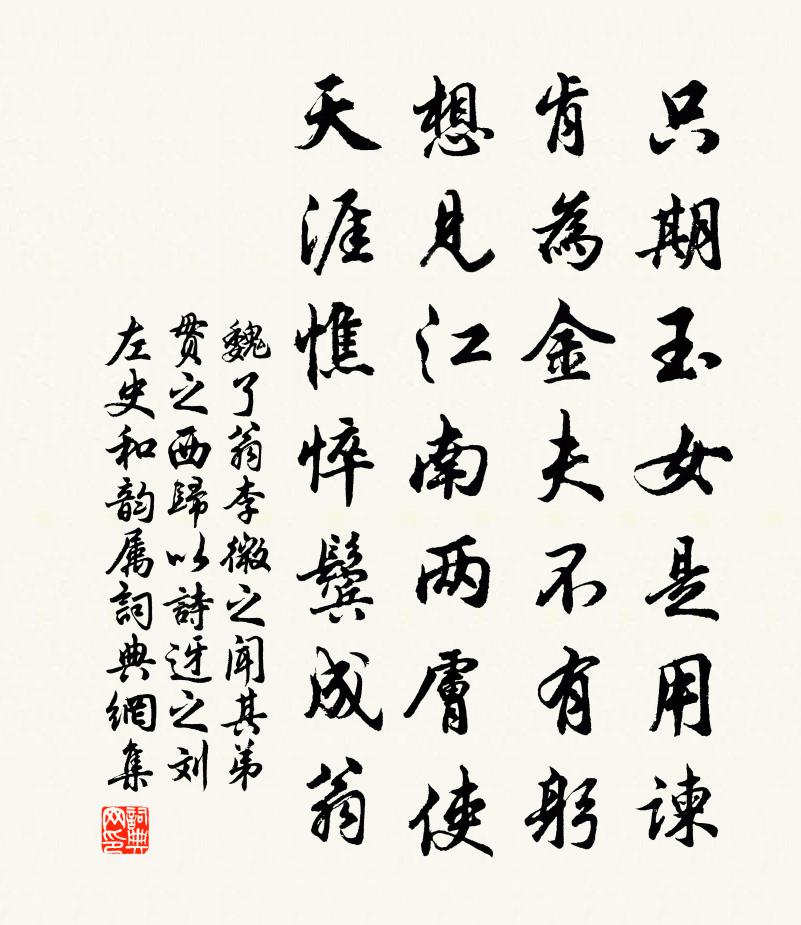 只期玉女是用諫
肯為金夫不有躬
想見江南两膚使
天涯憔悴鬓成翁
魏了翁李微之闻其弟
贯之西歸以詩迓之刘
左史和韵属詞典網集
詞典
网印